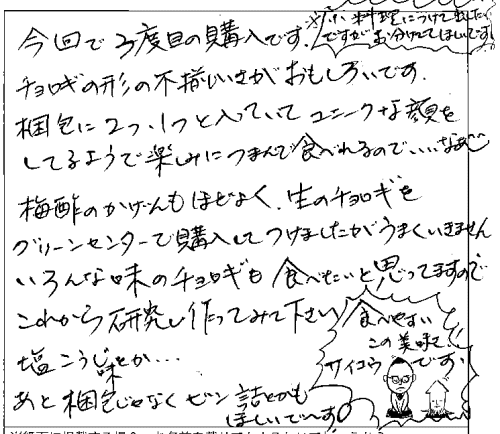 今回で3度目の購入です。
※小料理につけて出したい
ですが お分けてほしいです。
チョロギの形の不揃いさがおもしろいです。
梱包に2つ、1つと入っていてユニークな顔を
してるようで楽しみにつまんで食べれるのでいいなあ
梅酢のかげんもほどよく、生のチョロギを
グリーンセンターで購入してつけましたがうまくいきません
いろんな味のチョロギも食べたいと思ってますので
これから研究し作ってみて下さい
塩こうじ味とか…
食べやすい
この美味さ!
サイコウです。
あと梱包じゃなくビン詰とかも
ほしいで〜す。